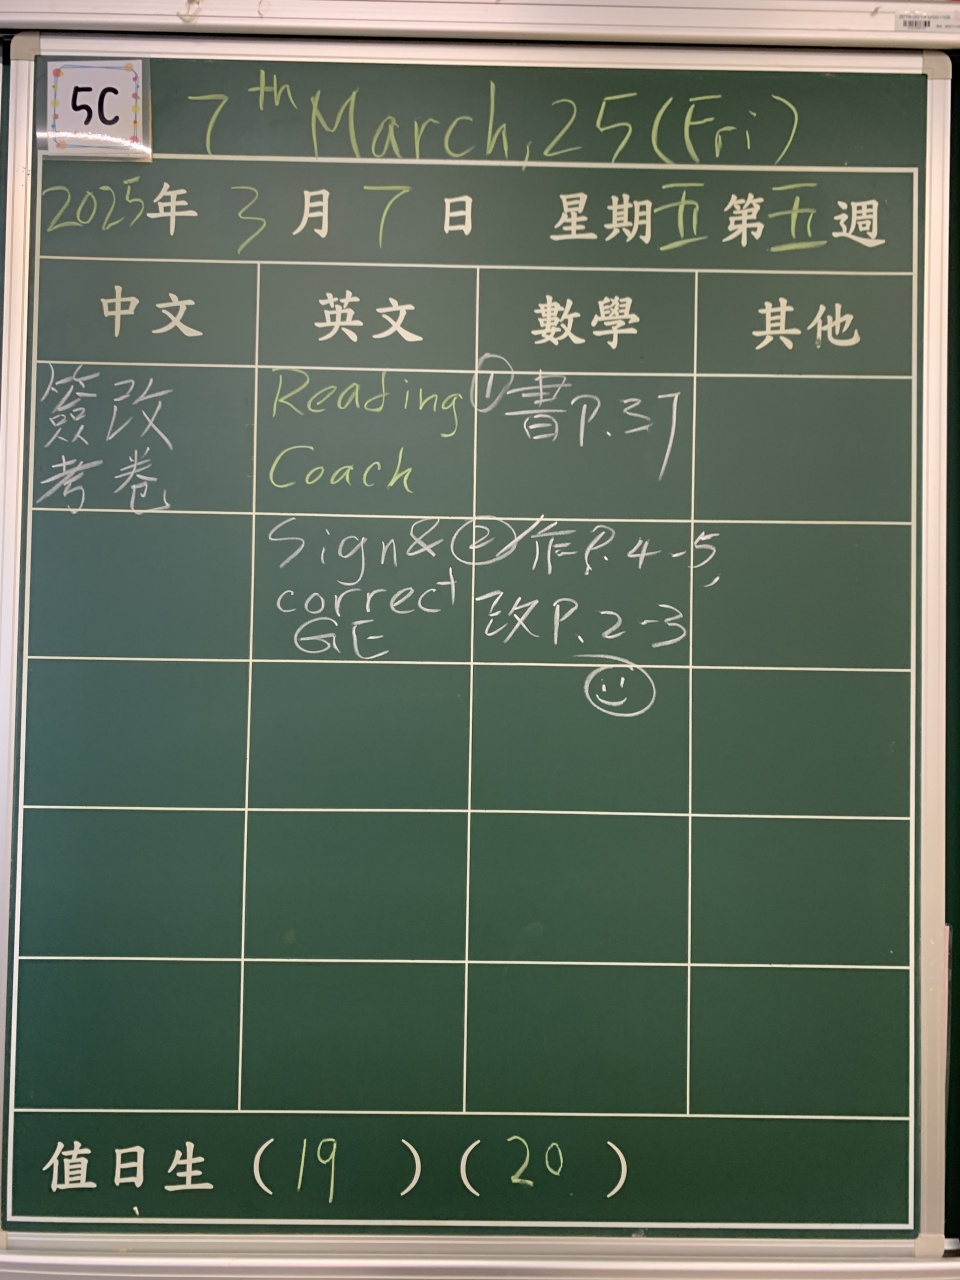 5C
7th March, 25 (Fri)
2025年 3月 7日 星期五 第五週
中文 英文 數學 其他
簽改
考卷
Reading
Coach
①書P.37
Sign &
correct
GE
②作P.4-5,
改P.2-3
值日生 (19) (20)